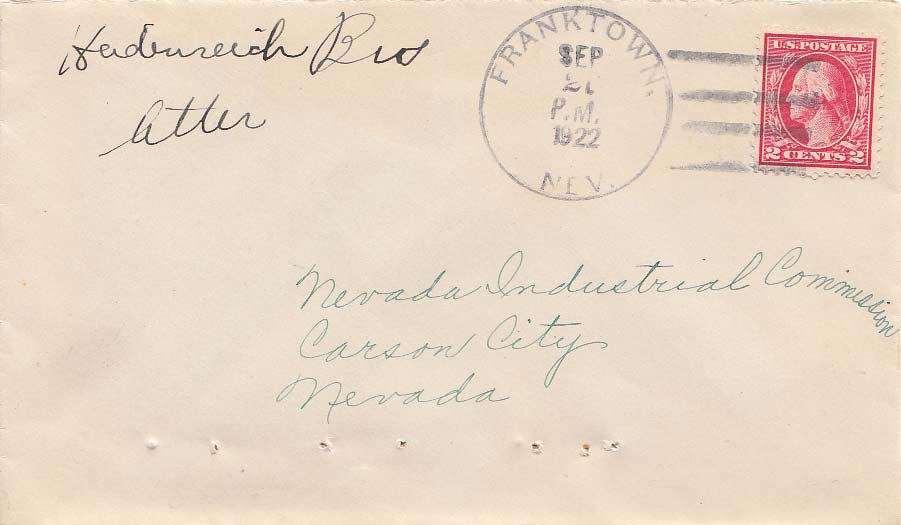 Heidenreich Bros
Atter
FRANKTOWN,
SEP
21
P.M.
1922
NEV.
U.S. POSTAGE
2 CENTS 2
Nevada Industrial Commission
Carson City
Nevada